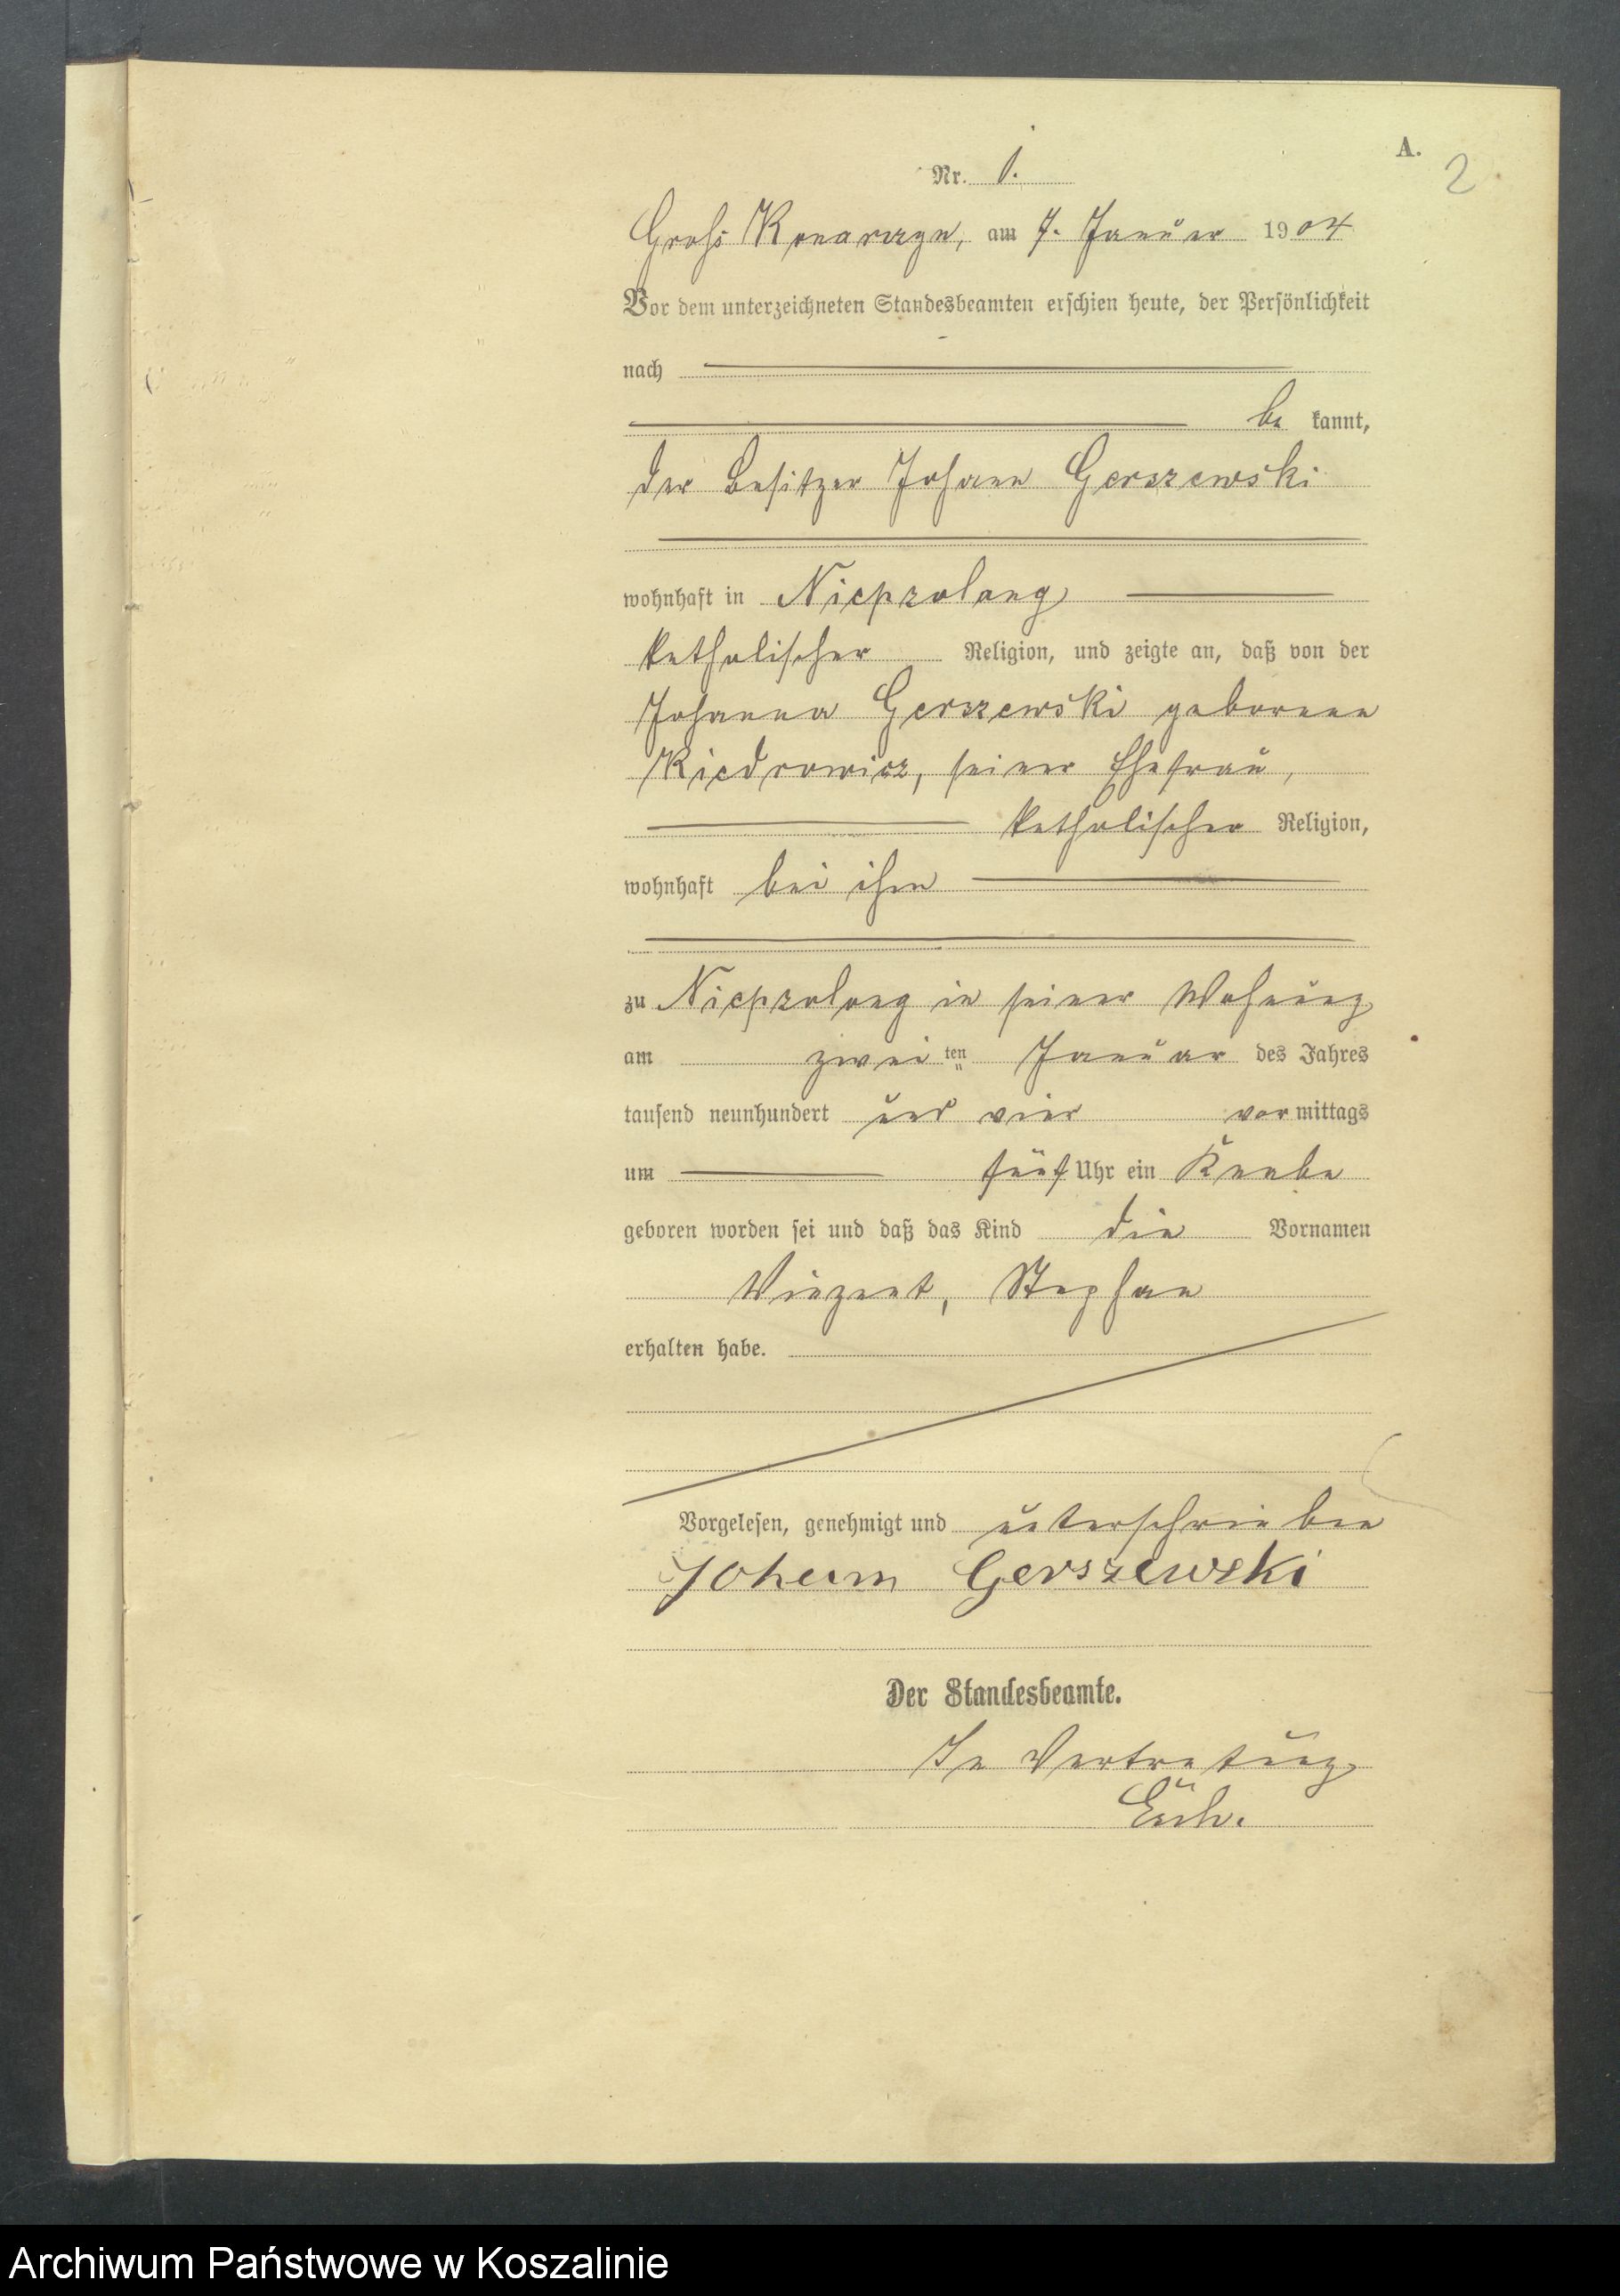 A.
2
Nr. 1.
Groß Konarczyn, am 7. Januar 1904
Vor dem unterzeichneten Standesbeamten erschien heute, der Persönlichkeit
nach
be kannt,
der Besitzer Johann Gerszewski
wohnhaft in Niepszolong
katholischer Religion, und zeigte an, daß von der
Johanna Gerszewski geborenen
Kiedrowicz, seiner Ehefrau,
katholischer Religion,
wohnhaft bei ihm
zu Niepszolong in seiner Wohnung
am zwei ten Januar des Jahres
tausend neunhundert und vier vor mittags
um fünf Uhr ein Knabe
geboren worden sei und daß das Kind die Vornamen
Vinzent, Stephan
erhalten habe.
Vorgelesen, genehmigt und unterschrieben
Johann Gerszewski
Der Standesbeamte.
In Vertretung
Archiwum Państwowe w Koszalinie